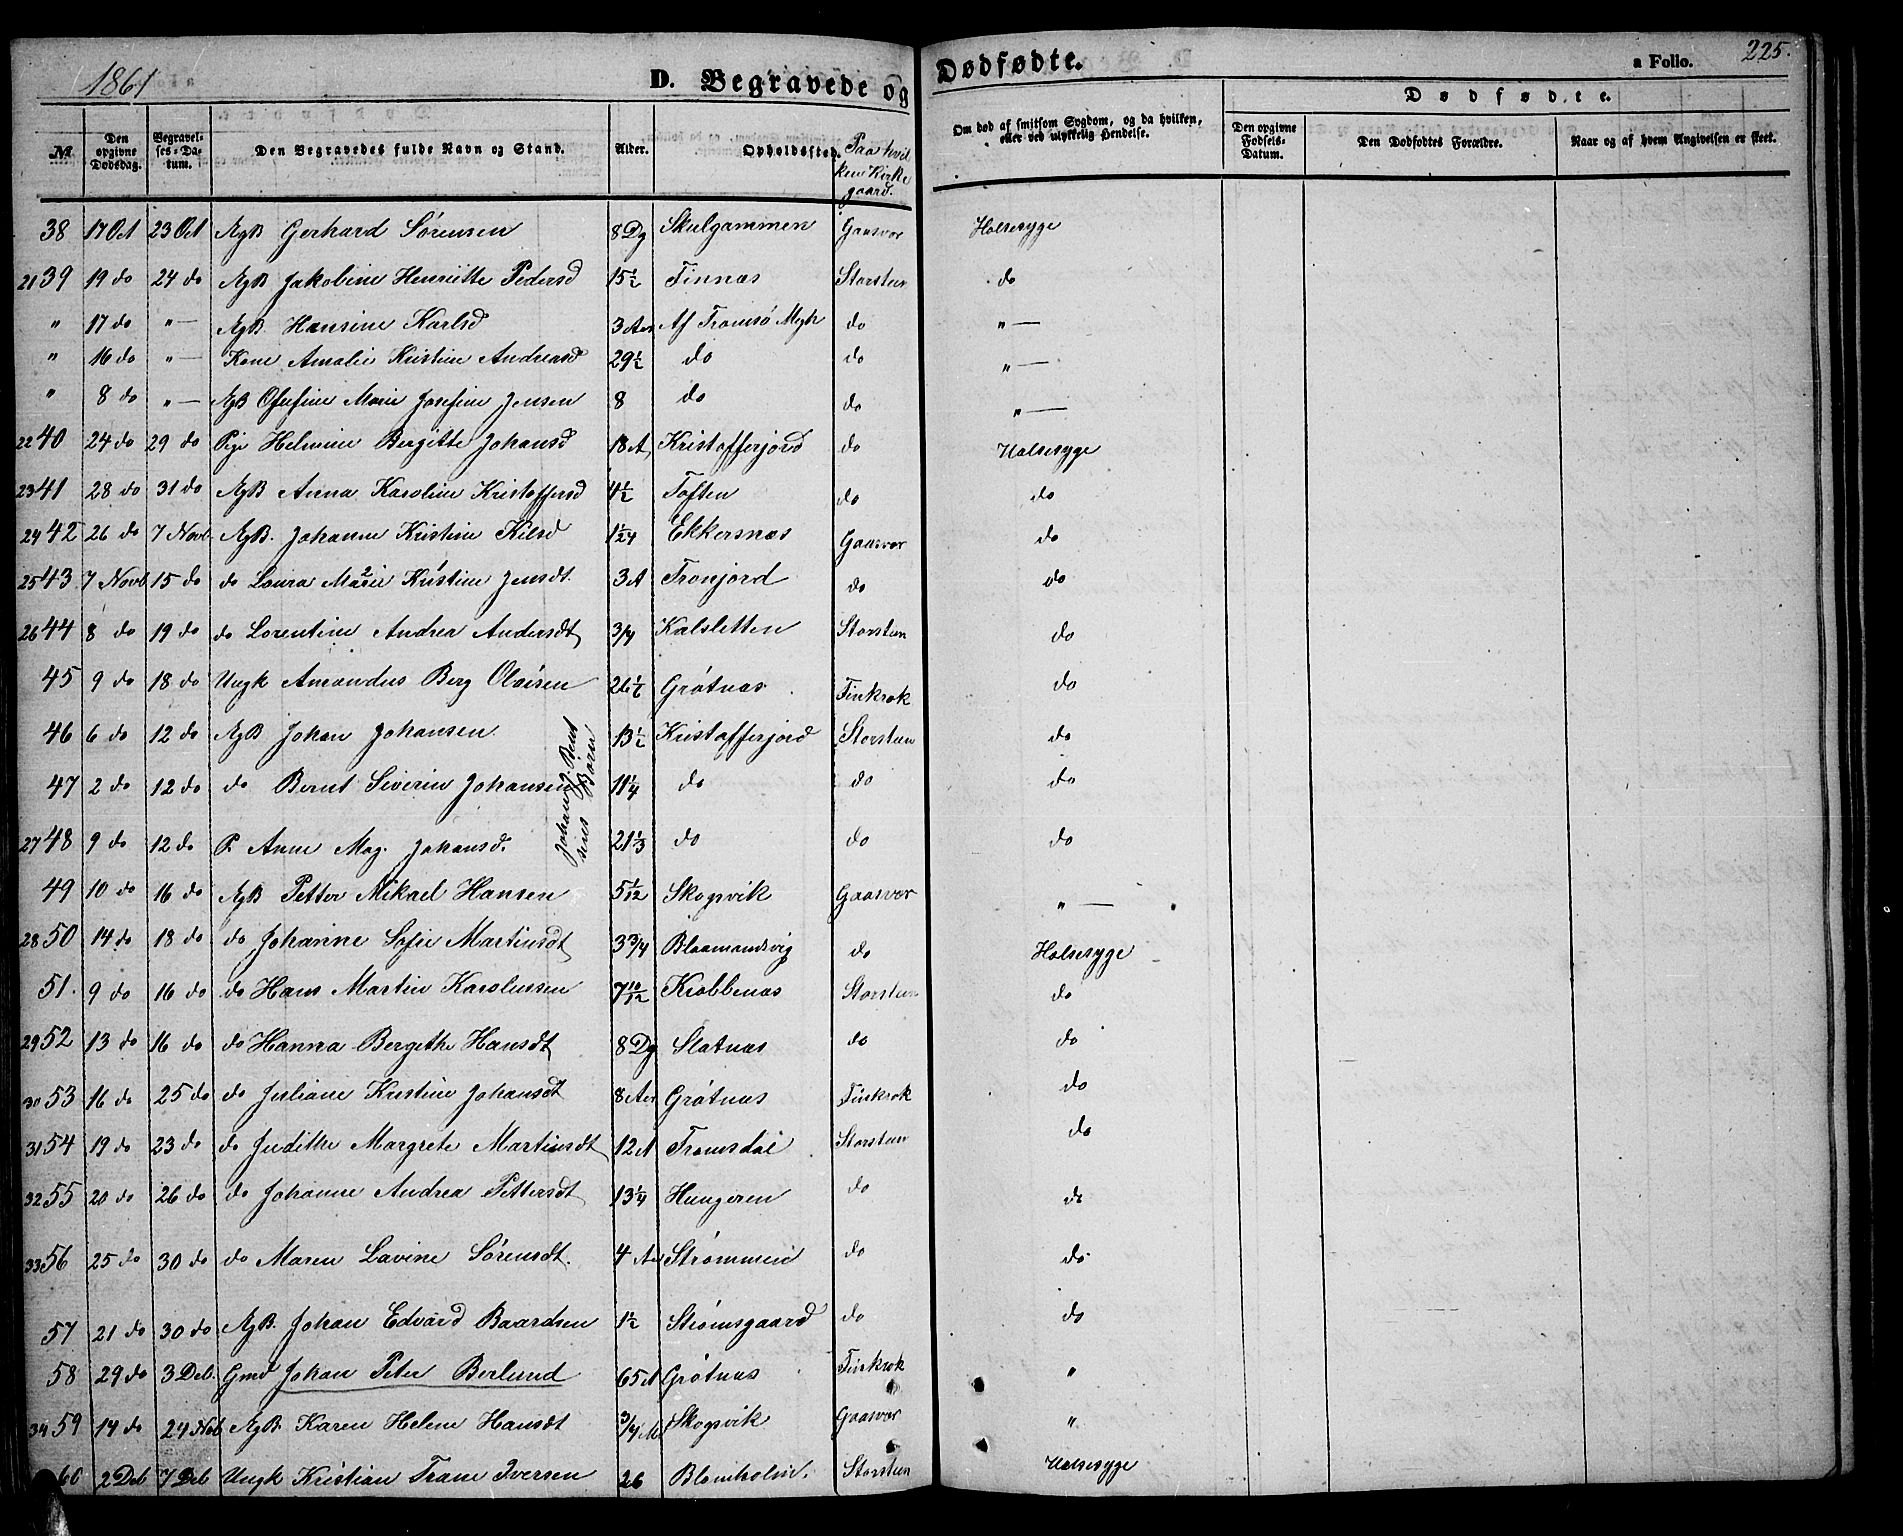 1861 D. Begravede og Dødfødte. a Folio. 225.
Dødfødte.
№ Den opgivne Dødsdag. Begravelses-Datum. Den Begravedes fulde Navn og Stand. Alder. Opholdssted. Paa hvilken Kirkegaard. Om død af smitsom Sygdom, og da hvilken, eller ved ulykkelig Hendelse. Den opgivne Fødsels-Datum. Den Dødfødtes Forældre. Naar og af hvem Angivelsen er skeet.
38 17 Oct 23 Oct AgB Gerhard Sørensen 8 Dg Skulgammen Gaasvær Halsesyge
21 39 19 do 24 do AgB Jakobine Henriette Pedersd 15½ Finnæs Storsteen do
" 17 do "— AgB Hansine Karlsd 3 Aar Af Tromsø Mgh do "—
" 16 do "— Kone Amalie Kristine Andreasd 29½ do do "—
" 8 do "— AgB Olufine Marie Josefine Jensen 8 do do "—
22 40 24 do 29 do Pige Helmine Bergitte Johansd 18 A Kristofferjord do Halsesyge
23 41 28 do 31 do AgB Anna Karoline Kristoffersd 4½ Toften do do
24 42 26 do 7 Novb AgB. Johanne Kristine Kilsd 1/24 Ekkersnæs Gaasvær do
25 43 7 Novb 15 do do Laura Marie 2 Kristine Jensdt. 3 A Tronjord do do
26 44 8 do 19 do do Lorentine Andrea Andersdt 3/4 Kalsletten Storsteen do
45 9 do 18 do Ungk Amandus Berg Olaisen 26½ Grøtnæs Finkrok do
46 6 do 12 do AgB Johan Johansen 13½ Kristofferjord Storsteen do
47 2 do 12 do do Bernt Siverin Johansen 11¼ do do do
27 48 9 do 12 do P. Anne Mag. Johansd. 21⅓ do do do
Johan J. Berntsens Børn
49 10 do 16 do AgB Petter Mikael Hansen 5 1/12 Skogsvik Gaasvær "—
28 50 14 do 18 do do Johanne Sofie Martinsdt 3¾ Blaamandsvig do Halsesyge
51. 9 do 16 do do Hans Martin Karolussen 7 10/12 Krabbenæs Storsteen do
29 52 13 do 16 do do Hanna Bergithe Hansdt 8 Dg Slatnæs do do
30 53 16 do 25 do do Juliane Kristine Johansdt 8 Aar Grøtnæs Finkrok do
31 54 19 do 23 do do Judithe Margrete Martinsdt 12 A Tromsdal Storsteen do
32 55 20 do 26 do do Johanne Andrea Pettersdt 13¼ Hungeren do do
33 56 25 do 30 do do Maren Lavine Sørensdt. 4 Aar Strømmen do do
57 21 do 30 do AgB. Johan Edvard Baardsen 1½ Strømsgaard do do
58 29 do 3 Deb. Gmd Johan Peter Berlund 65 A Grøtnæs Finkrok "
34 59 14 do 24 Nob AgB. Karen Helene Hansdt 3/4 M Skogsvik Gaasvær "
60 2 Deb 7 Deb Ungk Kristian Trane Iversen 26 Blomholm. Storsteen Halsesyge